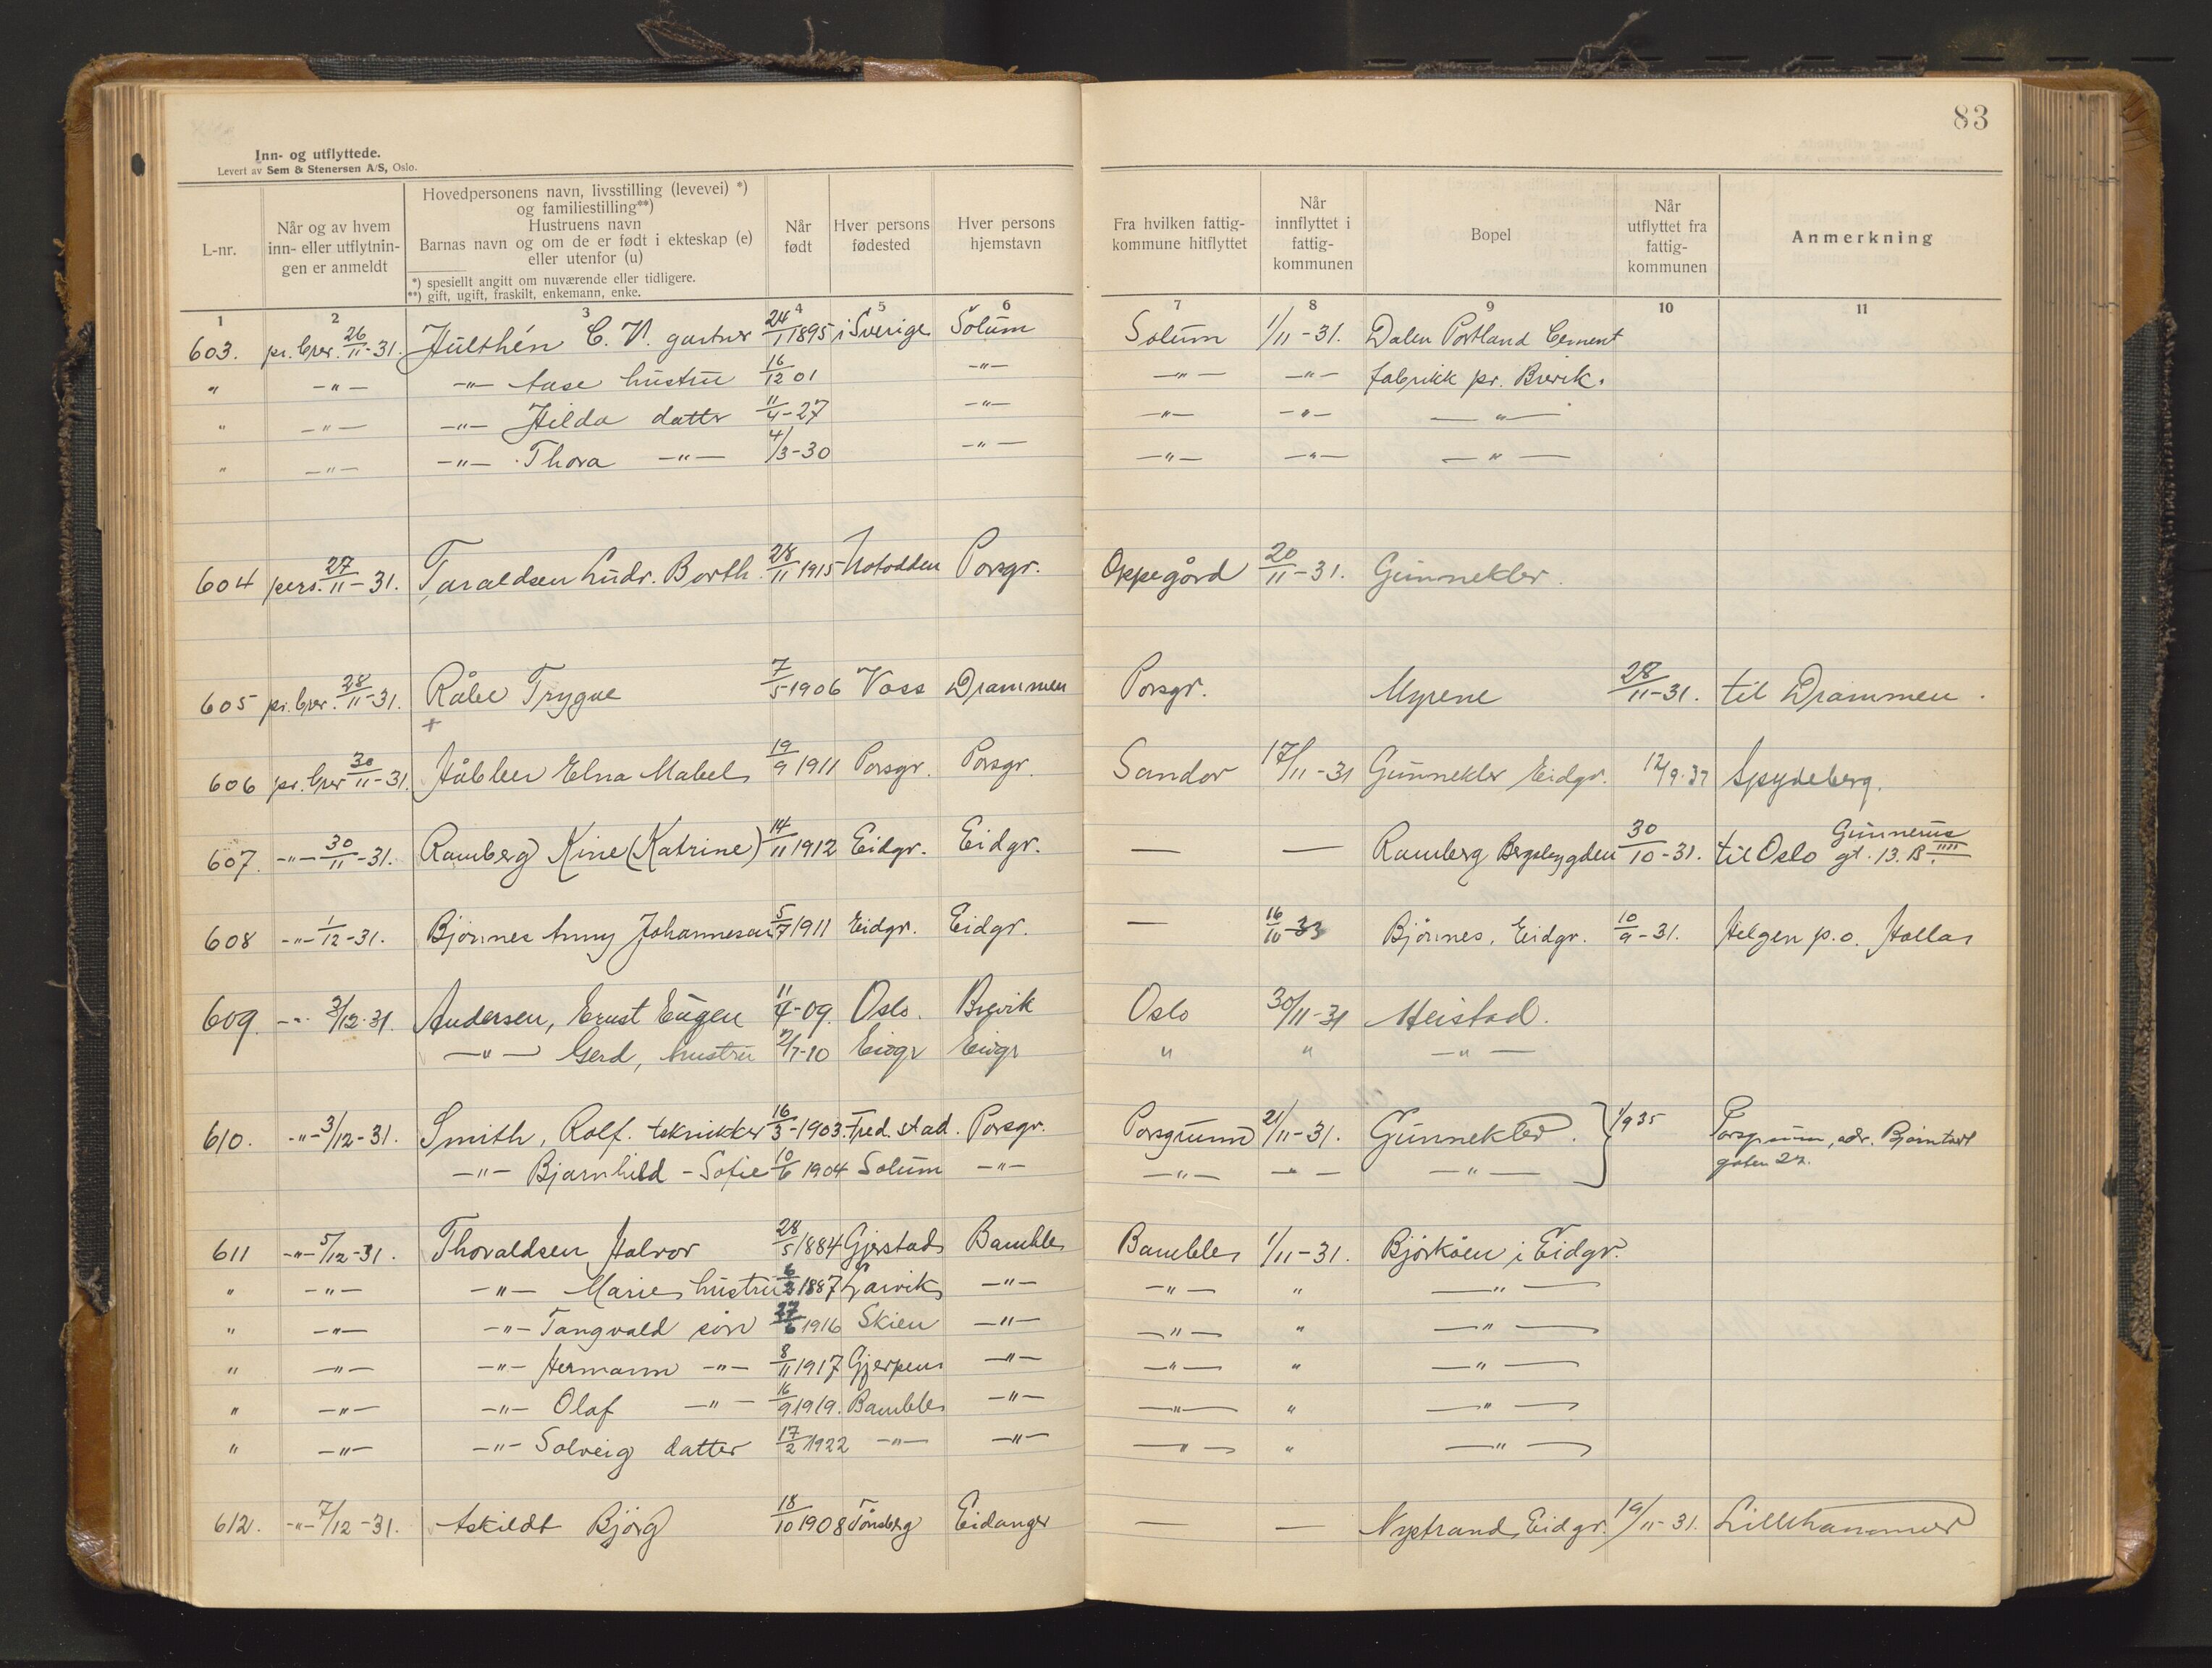 83
Inn- og utflyttede.
Levert av Sem & Stenersen A/S, Oslo.
L-nr. | Når og av hvem inn- eller utflytningen er anmeldt | Hovedpersonens navn, livsstilling (levevei) *) og familiestilling**) Hustruens navn Barnas navn og om de er født i ekteskap (e) eller utenfor (u) *) spesiellt angitt om nuværende eller tidligere. **) gift, ugift, fraskilt, enkemann, enke. | Når født | Hver persons fødested | Hver persons hjemstavn | Fra hvilken fattigkommune hitflyttet | Når innflyttet i fattigkommunen | Bopel | Når utflyttet fra fattigkommunen | Anmerkning
1 | 2 | 3 | 4 | 5 | 6 | 7 | 8 | 9 | 10 | 11
603. | pr. brev. 26/11-31. | Hulthén C. V. gartner | 24/1 1895 | i Sverige | Solum | Solum | 1/11-31. | Dalen Portland Cement
" | -"- | -"- Aase hustru | 16/12 01 | | -"- | -"- | -"- | fabrikk pr. Brevik.
" | -"- | -"- Hilda datter | 11/4-27 | | -"- | -"- | -"- | -"-
" | -"- | -"- Thora -"- | 4/3-30 | | -"- | -"- | -"- | -"-
604 | pers. 27/11-31. | Taraldsen Ludv. Borth. | 28/11 1915 | Notodden | Porsgr. | Oppegård | 20/11-31. | Gunnekler.
605 | pr. brev. 28/11-31. | Råbe Trygve | 7/5-1906 | Voss | Drammen | Porsgr. | | Myrene | 28/11-31. | til Drammen.
+
606 | pr. brev 30/11-31. | Håbber Elna Mabel | 19/9 1911 | Porsgr. | Porsgr. | Sandar | 17/11-31 | Gunnekler Eidgr. | 12/9.37 | Spydeberg.
607. | -"- 30/11-31. | Ramberg Kine (Katrine) | 14/11 1912 | Eidgr. | Eidgr. | — | — | Ramberg Bergsbygden | 30/10-31. | til Oslo Gunnerus gt. 13. B ""
608 | -"- 1/12-31. | Bjønnes Anny Johannesen | 5/7 1911 | Eidgr. | Eidgr. | — | 16/10-33 | Bjønnes, Eidgr. | 10/9-31. | Helgen p.o. Holla
609. | -"- 3/12-31. | Andersen, Ernst Eugen | 11/4-09. | Oslo. | Brevik | Oslo | 30/11-31 | Heistad.
-"- Gerd, hustru | 2/7-10 | Eidgr | Eidgr | " | " | -"-
610. | -"- 3/12-31. | Smith, Rolf. tekniker | 16/3-1903. | Fred.stad. | Porsgr. | Porsgrunn | 21/11-31. | Gunnekler. | 1/9 35 | Porsgrunn, adr. Bjørntvedt
-"- Bjarnhild - Sofie | 10/6 1904 | Solum | -"- | -"- | -"- | -"- | | gaten 22.
611 | -"- 5/12-31. | Thoraldsen Halvor | 28/5 1884 | Gjerstad | Bamble | Bamble | 1/11-31. | Bjørkøen i Eidgr.
" | -"- | -"- Marie hustru | 6/3 1887 | Larvik | -"- | -"- | " | -"-
" | -"- | -"- Tangvald søn | 27/6 1916 | Skien | -"- | -"- | " | -"-
" | -"- | -"- Hermann -"- | 8/11 1917 | Gjerpen | -"- | -"- | " | -"-
" | -"- | -"- Olaf -"- | 16/9 1919. | Bamble | -"- | -"- | " | -"-
" | -"- | -"- Solveig datter | 17/2 1922 | -"- | -"- | -"- | " | -"-
612. | -"- 7/12-31. | Askildt Bjørg | 18/10 1908 | Tønsberg | Eidanger | — | — | Nystrand, Eidgr. | 19/11-31. | Lillehammer